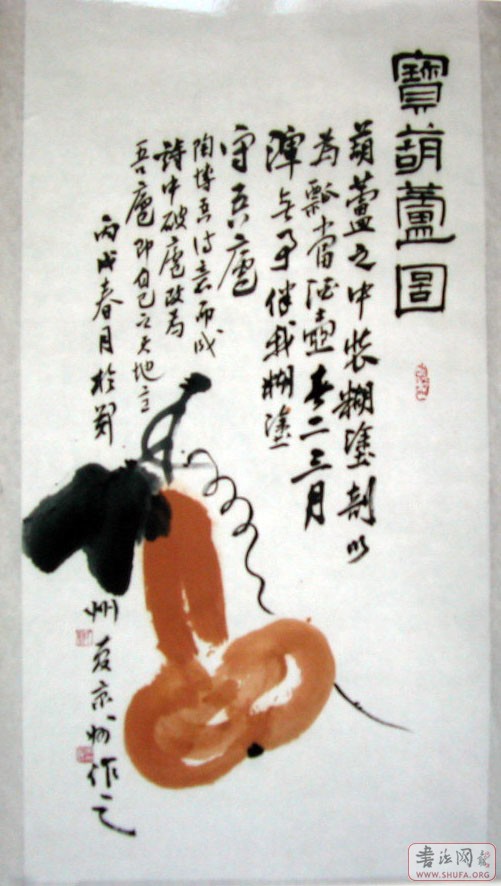 寶葫蘆圖
葫蘆之中裝糊塗剖以
為瓢當酒壺春二三月
障無事伴我糊塗
守吾廬
陶博吾詩意而成
詩中破廬改為
吾廬即自己之天地之
丙戌春月於鄭
州 京州作之
書法网
WWW.SHUFA.ORG